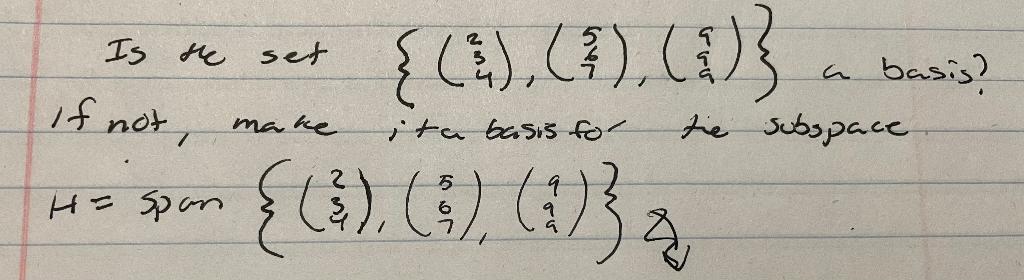 Is the set { (2 3 4), (5 6 7), (9 9 9) } a basis?
If not, make it a basis for the subspace
H = span { (2 3 4), (5 6 7), (9 9 9) }